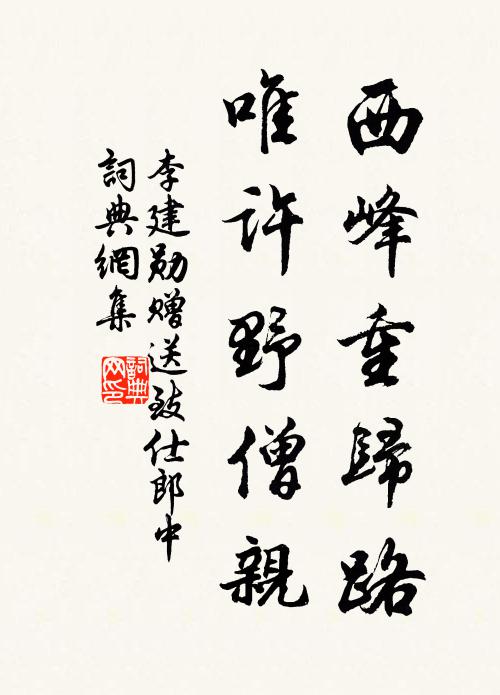 西峰重歸路
唯許野僧親
李建勋贈送致仕郎中
詞典網集
詞典網印